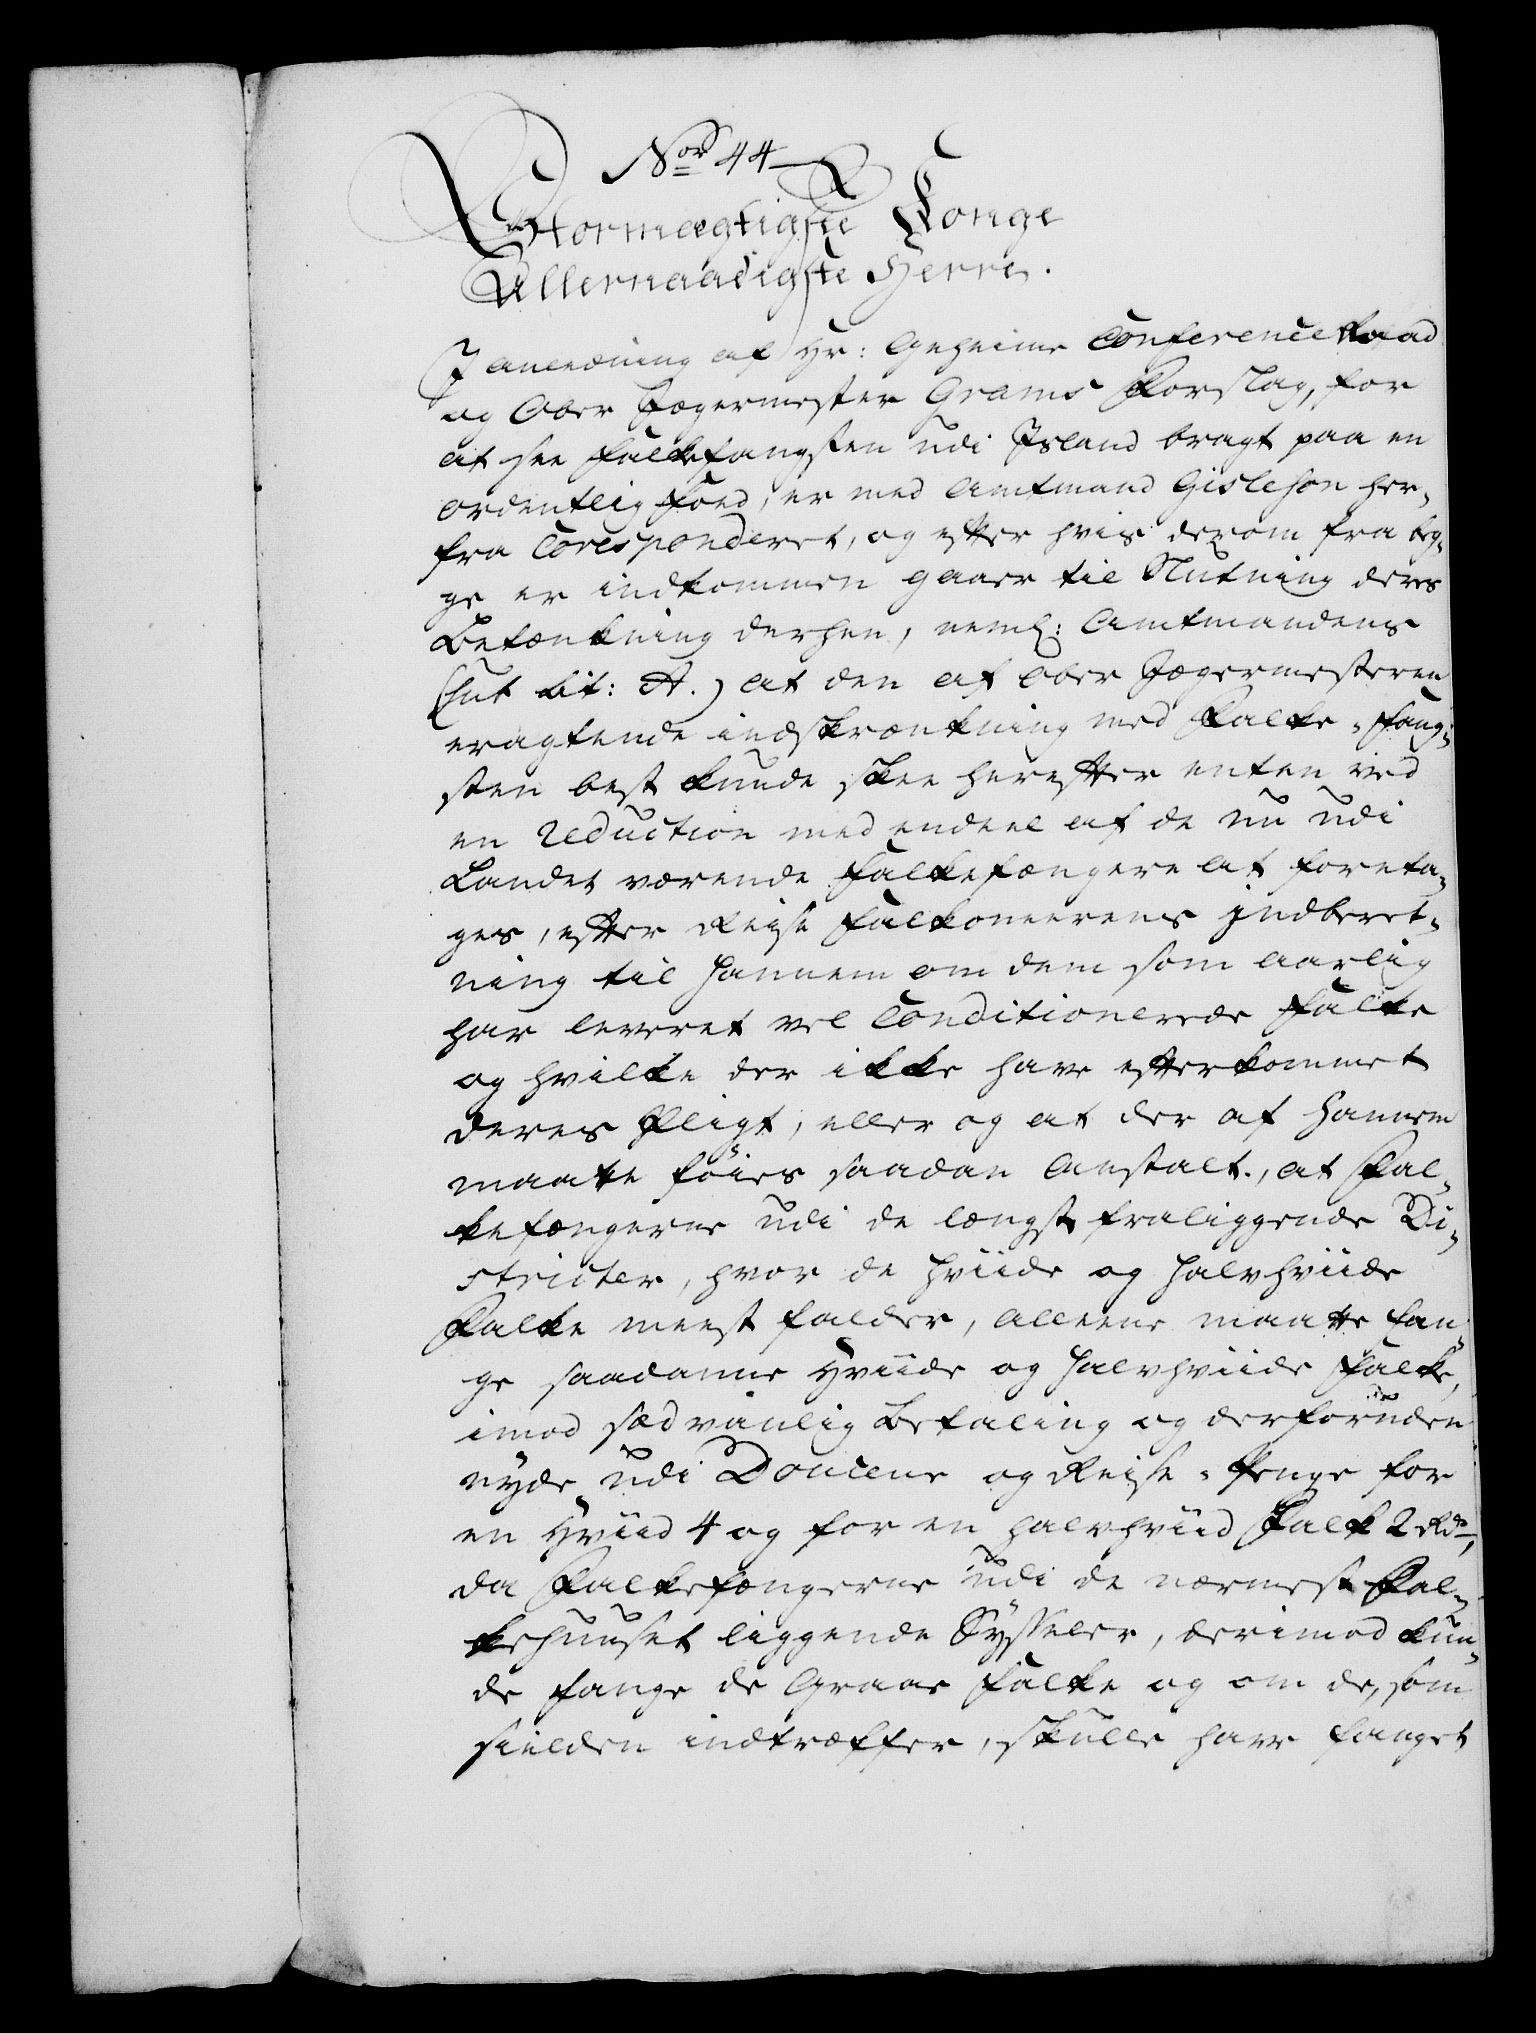 No 44
Stormægtigste Konge
Allernaadigste Herre.
I anledning af Hr: Geheime Conference Raad
og Ober Jægermester Grams Forslag, for
at see Falkefangsten udi Island bragt paa en
ordentlig Foed, er med Amtmand Gisleson her-
fra Coresponderet, og efter hvis derom fra beg-
ge er indkommen gaaer til Slutning deres
Betænkning derhen, neml: Amtmandens
(sub lit: A.) at den af Ober Jægermesteren
eragtende indskrænkning med Falke-Fang-
sten best kunde skee herefter enten ved
en Reduction med endeel af de nu udi
Landet værende Falkefængere at foreta-
ges, efter Reise Falkoneerens Indberet-
ning til Hannem om dem som aarlig
har leveret vel Conditioneerede Falke
og hvilke der ikke have efterkommet
deres Pligt, eller og at der af Hannem
maatte føies saadan Anstalt, at Fal-
kefængerne udi de længst fraliggende Di-
stricter, hvor de Hviide og Halvhviide
Falke meest falder, alleene maatte fan-
ge saadanne Hviide og Halvhviide Falke,
imod sædvanlig Betaling og derforuden
nyde udi Douceur og Reise-Penge for
en Hviid 4 og for en Halvhviid Falk 2 Rdr,
da Falkefængerne udi de nærmest Fal-
kehuuset liggende Sysseler, derimod kun-
de fange de Graae Falke og om de, som
sielden indtræffer, skulle have fanget